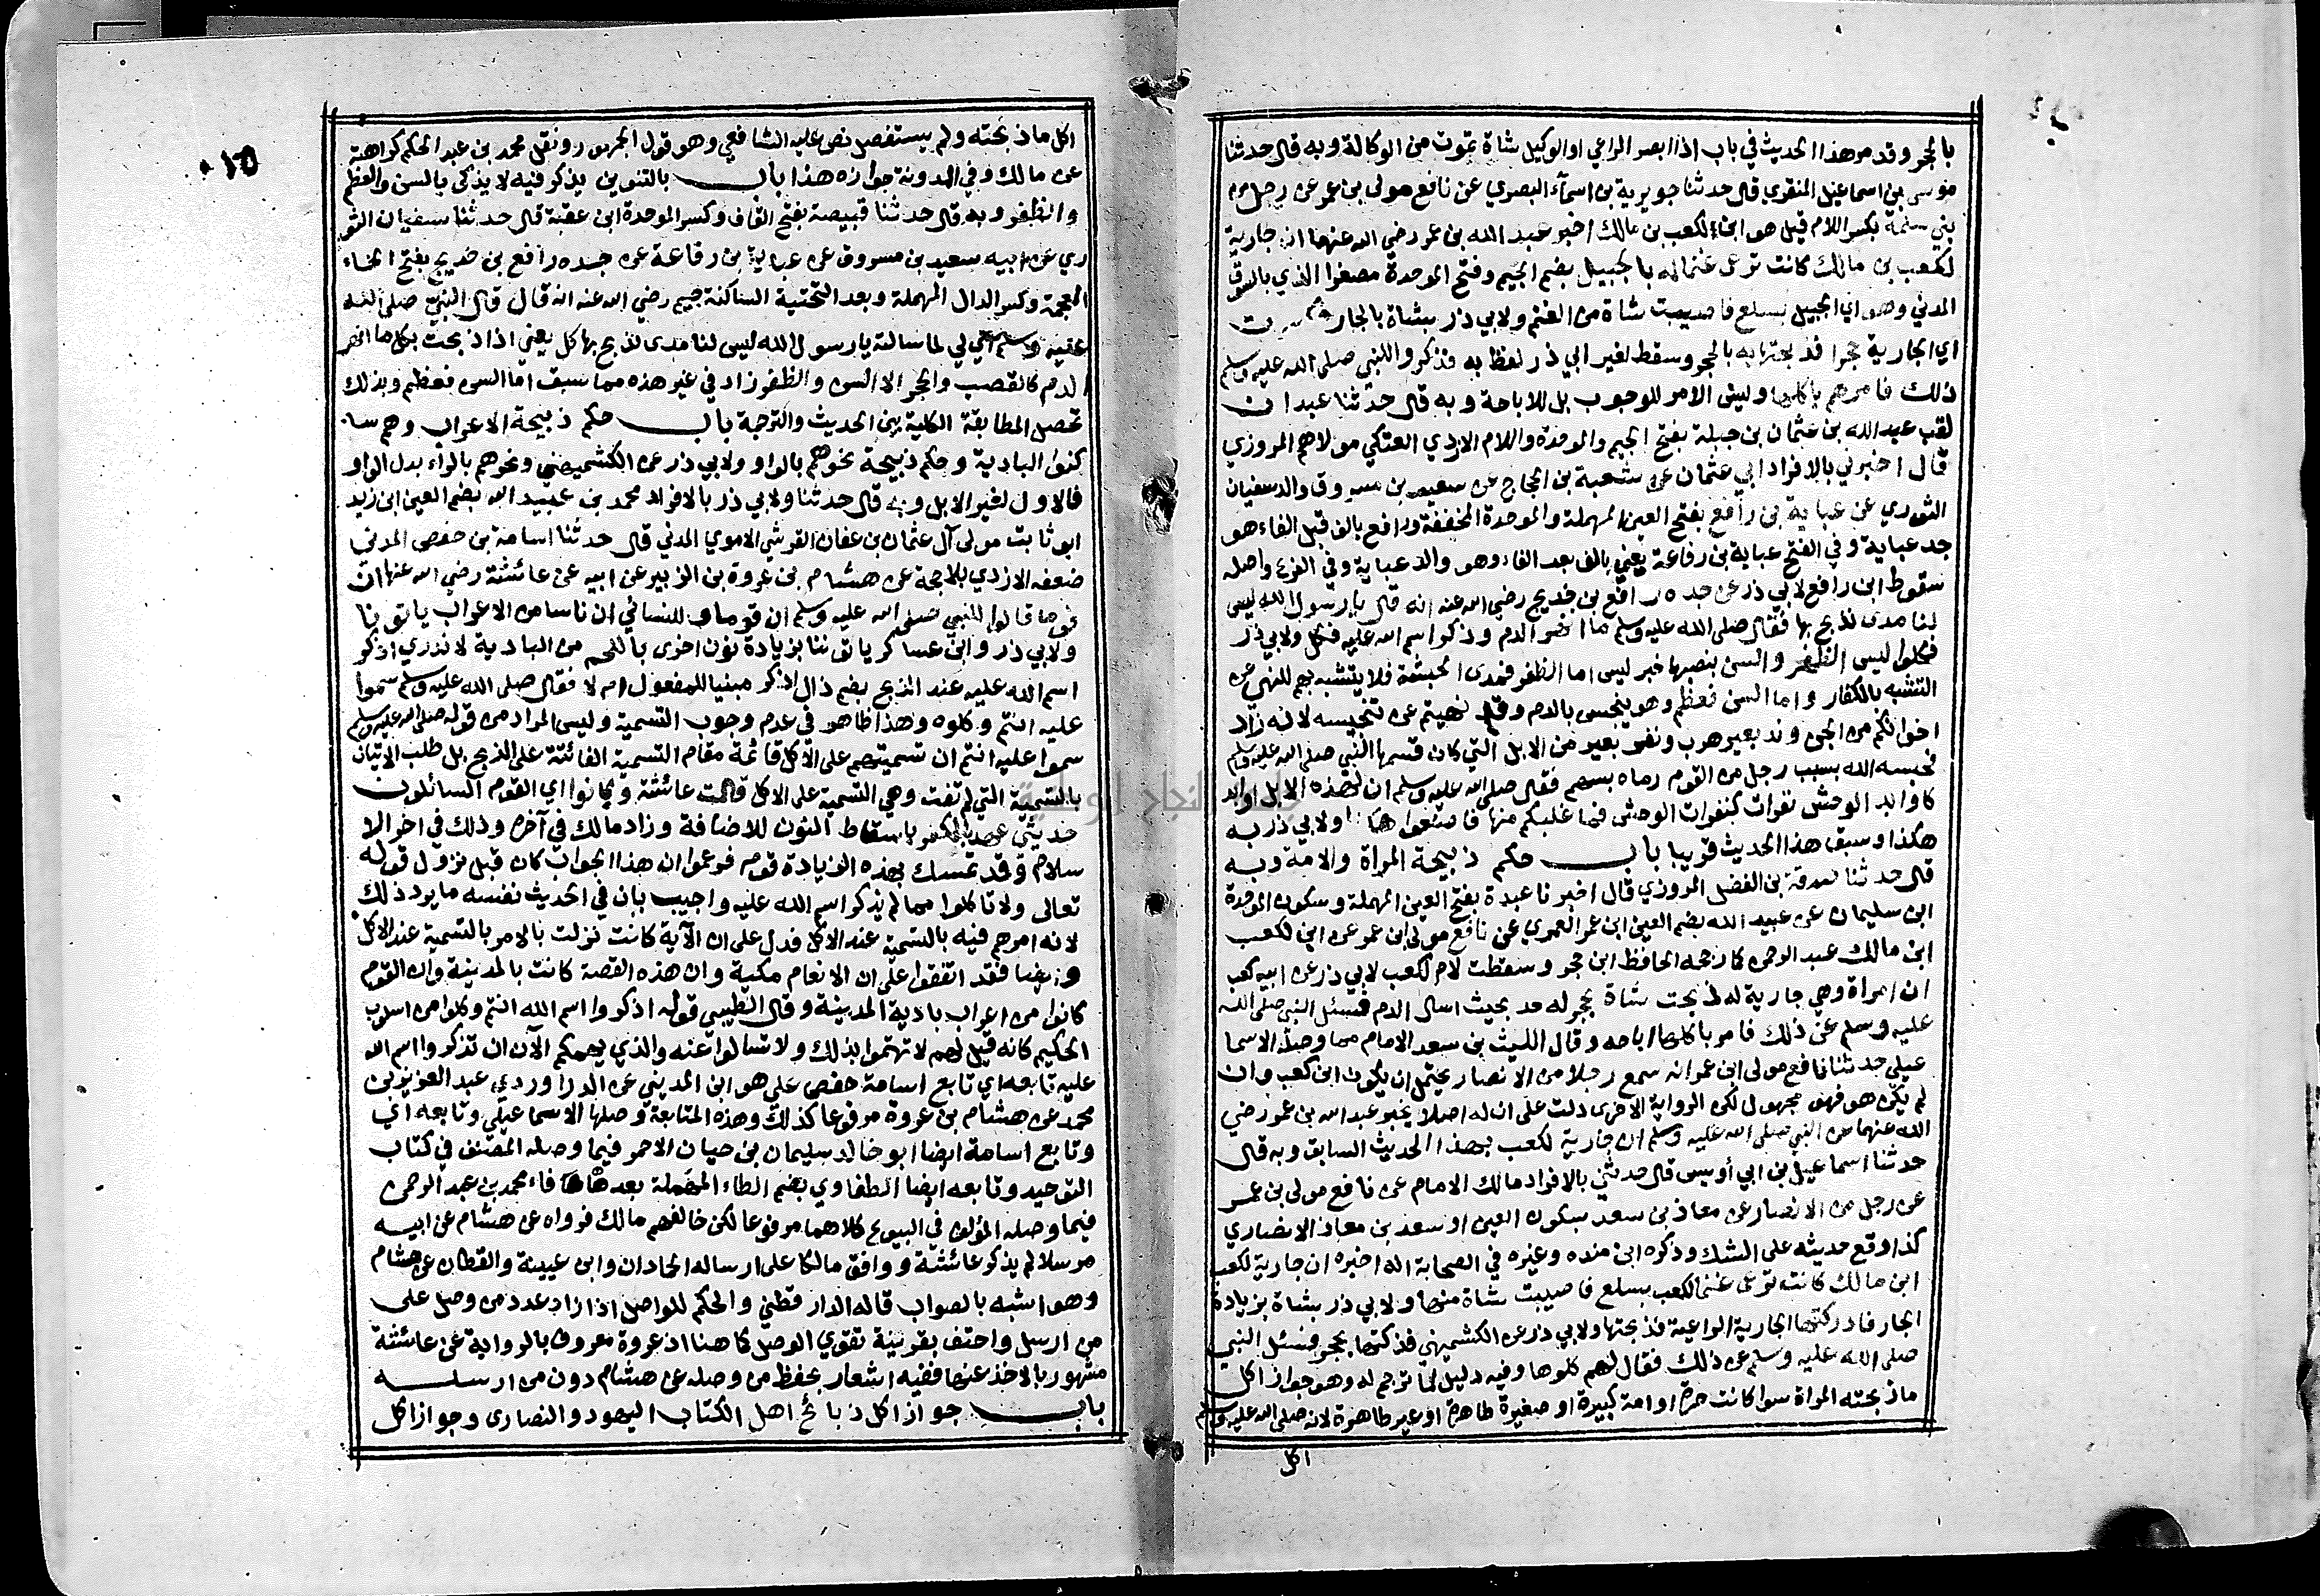 بالحجر وقد مر هذا الحديث في باب اذا ابصر الراعي او الوكيل شاة تموت من الوكالة وبه قال حدثنا
موسى بن اسماعيل المنقري قال حدثنا جويرية بن اسمآء البصري عن نافع مولى بن عمر عن رجل من
بني سلمة بكسر اللام قيل هو ابن لكعب بن مالك اخبر عبد الله بن عمر رضي الله عنهما ان جارية
لكعب بن مالك كانت ترعى غنما له بالجبيل بضم الجيم وفتح الموحدة مصغرا الذي بالسوق
المدني وهو اي الجبيل بسلع فاصيبت شاة من الغنم ولابي ذر بشاة بالجار فكسرت
اي الجارية حجرا فذبحتها به بالحجر وسقط لغير ابي ذر لفظ به فذكروا للنبي صلى الله عليه وسلم
ذلك فامرهم باكلها وليس الامر للوجوب بل للاباحة وبه قال حدثنا عبدان
لقب عبد الله بن عثمان بن جبلة بفتح الجيم والموحدة واللام الازدي العتكي مولاهم المروزي
قال اخبرني بالافراد ابي عثمان عن شعبة بن الحجاج عن سعيد بن مسروق والد سفيان
الثوري عن عباية بن رافع بفتح العين المهملة والموحدة المخففة ورافع بالف قبل الفاء هو
جد عباية وفي الفتح عباية بن رفاعة يعني بالف بعد الفاء وهو والد عباية وفي الفرع واصله
سقوط ابن رافع لابي ذر عن جده رافع بن خديج رضي الله عنه انه قال يا رسول الله ليس
لنا مدى نذبح بها فقال صلى الله عليه وسلم ما انهر الدم وذكر اسم الله عليه فكل ولابي ذر
فكلوا ليس الظفر والسن بنصبها خبر ليس اما الظفر فمدى الحبشة فلا يتشبه بهم للنهي عن
التشبه بالكفار واما السن فعظم وهو ينجس بالدم وقد نهيتم عن تنجيسه لانه زاد
اخوانكم من الجن وند بعير هرب ونفر بعير من الابل التي كان قسمها النبي صلى الله عليه وسلم
فحبسه الله بسبب رجل من القوم رماه بسهم فقال صلى الله عليه وسلم ان لهذه الابل اوابد
كاوابد الوحش نفرات كنفرات الوحش فما غلبكم منها فاصنعوا ولابي ذر به
هكذا وسبق هذا الحديث قريبا باب حكم ذبيحة المراة والامة وبه
قال حدثنا صدقة بن الفضل المروزي قال اخبرنا عبدة بفتح العين المهملة وسكون الموحدة
ابن سليمان عن عبيد الله بضم العين ابن عمر العمري عن نافع مولى ابن عمر عن ابن لكعب
ابن مالك عبد الرحمن كما رجحه الحافظ ابن حجر وسقطت لام لكعب لابي ذر عن ابيه كعب
ان امراة وهي جارية له ذبحت شاة بحجر له حد بحيث اسال الدم فسئل النبي صلى الله
عليه وسلم عن ذلك فامر باكلها اباحه وقال الليث بن سعد الامام مما وصله الاسما
عيلي حدثنا نافع مولى ابن عمر انه سمع رجلا من الانصار يحتمل ان يكون ابن كعب وان
لم يكن هو فهو مجهول لكن الرواية الاخرى دلت على ان له اصلا يخبر عبد الله بن عمر رضي
الله عنهما عن النبي صلى الله عليه وسلم ان جارية لكعب بهذا الحديث السابق وبه قال
حدثنا اسماعيل بن ابي أويس قال حدثني بالافراد مالك الامام عن نافع مولى بن عمر
عن رجل من الانصار عن معاذ بن سعد بسكون العين او سعد بن معاذ الانصاري
كذا وقع حديثه على الشك وذكره ابن منده وغيره في الصحابة انه اخبره ان جارية لكعب
ابن مالك كانت ترعى غنما لكعب بسلع فاصيبت شاة منها ولابي ذر بشاة بزيادة
الجار فادركتها الجارية الراعية فذبحتها ولابي ذر عن الكشميهني فذكتها بحجر فسئل النبي
صلى الله عليه وسلم عن ذلك فقال لهم كلوها وفيه دليل لما ترجم له وهو جواز اكل
ماذبحته المراة سوا كانت حرة او امة كبيرة او صغيرة طاهرة او غير طاهرة لانه صلى الله عليه وسلم
اكل
١٥٠
اكل ماذبحته ولم يستفصل نص عليه الشافعي وهو قول الجمهور ونقل محمد بن عبد الحكم كراهته
عن مالك وفي المدونة جوازه هذا باب بالتنوين يذكر فيه لا يذكى بالسن والعظم
والظفر وبه قال حدثنا قبيصة بفتح القاف وكسر الموحدة ابن عقبة قال حدثنا سفيان الثو
ري عن ابيه سعيد بن مسروق عن عباية بن رفاعة عن جده رافع بن خديج بفتح الخاء
المعجمة وكسر الدال المهملة وبعد التحتية الساكنة جيم رضي الله عنه انه قال قال النبي صلى الله
عليه وسلم اي لي لما سالته يا رسول الله ليس لنا مدى نذبح بها كل يعني اذا ذبحت بكل ما انهر
الدم كالقصب والحجر الا السن والظفر زاد في غير هذه مما سبق اما السن فعظم وبذلك
تحصل المطابقة الكلية بين الحديث والترجمة باب حكم ذبيحة الاعراب وهم سا
كنوا البادية وحكم ذبيحة نحوهم بالواو ولابي ذر عن الكشميهني ونحرهم بالراء بدل الواو
فالاول لغير الابل وبه قال حدثنا ولابي ذر بالافراد محمد بن عبيد الله بضم العين ابن زيد
ابو ثابت مولى آل عثمان بن عفان القرشي الاموي المدني قال حدثنا اسامة بن حفص المدني
ضعفه الازدي بلا حجة عن هشام بن عروة بن الزبير عن ابيه عن عائشة رضي الله عنها ان
قوما قالوا للنبي صلى الله عليه وسلم ان قوما وللنسائي ان ناسا من الاعراب ياتونا
ولابي ذر وابن عساكر ياتوننا بزيادة نون اخرى باللحم من البادية لا ندري اذكر
اسم الله عليه عند الذبح بضم ذال اذكر مبنيا للمفعول ام لا فقال صلى الله عليه وسلم سموا
عليه انتم وكلوه وهذا ظاهر في عدم وجوب التسمية وليس المراد من قوله صلى الله عليه وسلم
سموا عليه انتم ان تسميتهم على الاكل قائمة مقام التسمية الفائتة على الذبح بل طلب الاتيان
بالتسمية التي لم تفت وهي التسمية على الاكل قالت عائشة وكانوا اي القوم السائلون
حديثي عهد بالكفر باسقاط النون للاضافة وزاد مالك في آخره وذلك في اخر الا
سلام وقد تمسك بهذه الزيادة قوم فزعموا ان هذا الجواب كان قبل نزول قوله
تعالى ولا تاكلوا مما لم يذكر اسم الله عليه واجيب بان في الحديث نفسه ما يرد ذلك
لانه امرهم فيه بالتسمية عند الاكل فدل على ان الآية كانت نزلت بالامر بالتسمية عند الاكل
وايضا فقد اتفقوا على ان الانعام مكية وان هذه القصة كانت بالمدينة وان القوم
كانوا من اعراب بادية المدينة وقال الطيبي قوله اذكروا اسم الله انتم وكلوا من اسلوب
الحكيم كانه قيل لهم لا تهتموا بذلك ولا تسالوا عنه والذي يهمكم الآن ان تذكروا اسم الله
عليه تابعه اي تابع اسامة حفص علي هو ابن المديني عن الدراوردي عبد العزيز بن
محمد عن هشام بن عروة مرفوعا كذلك وهذه المتابعة وصلها الاسماعيلي وتابعه اي
وتابع اسامة ايضا ابو خالد سليمان بن حيان الاحمر فيما وصله المصنف في كتاب
التوحيد وتابعه ايضا الطفاوي بضم الطاء المهملة بعدها فاء محمد بن عبد الرحمن
فيما وصله المؤلف في البيوع كلاهما مرفوعا لكن خالفهم مالك فرواه عن هشام عن ابيه
مرسلا لم يذكر عائشة ووافق مالكا على ارساله الحمادان وابن عيينة والقطان عن هشام
وهو اشبه بالصواب قاله الدارقطني والحكم للواصل اذا زاد عدد من وصل على
من ارسل واحتف بقرينة تقوي الوصل كما هنا اذ عروة معروف بالرواية عن عائشة
مشهور بالاخذ عنها ففيه اشعار بحفظ من وصله عن هشام دون من ارسله
باب جواز اكل ذبائح اهل الكتاب اليهود والنصارى وجواز اكل